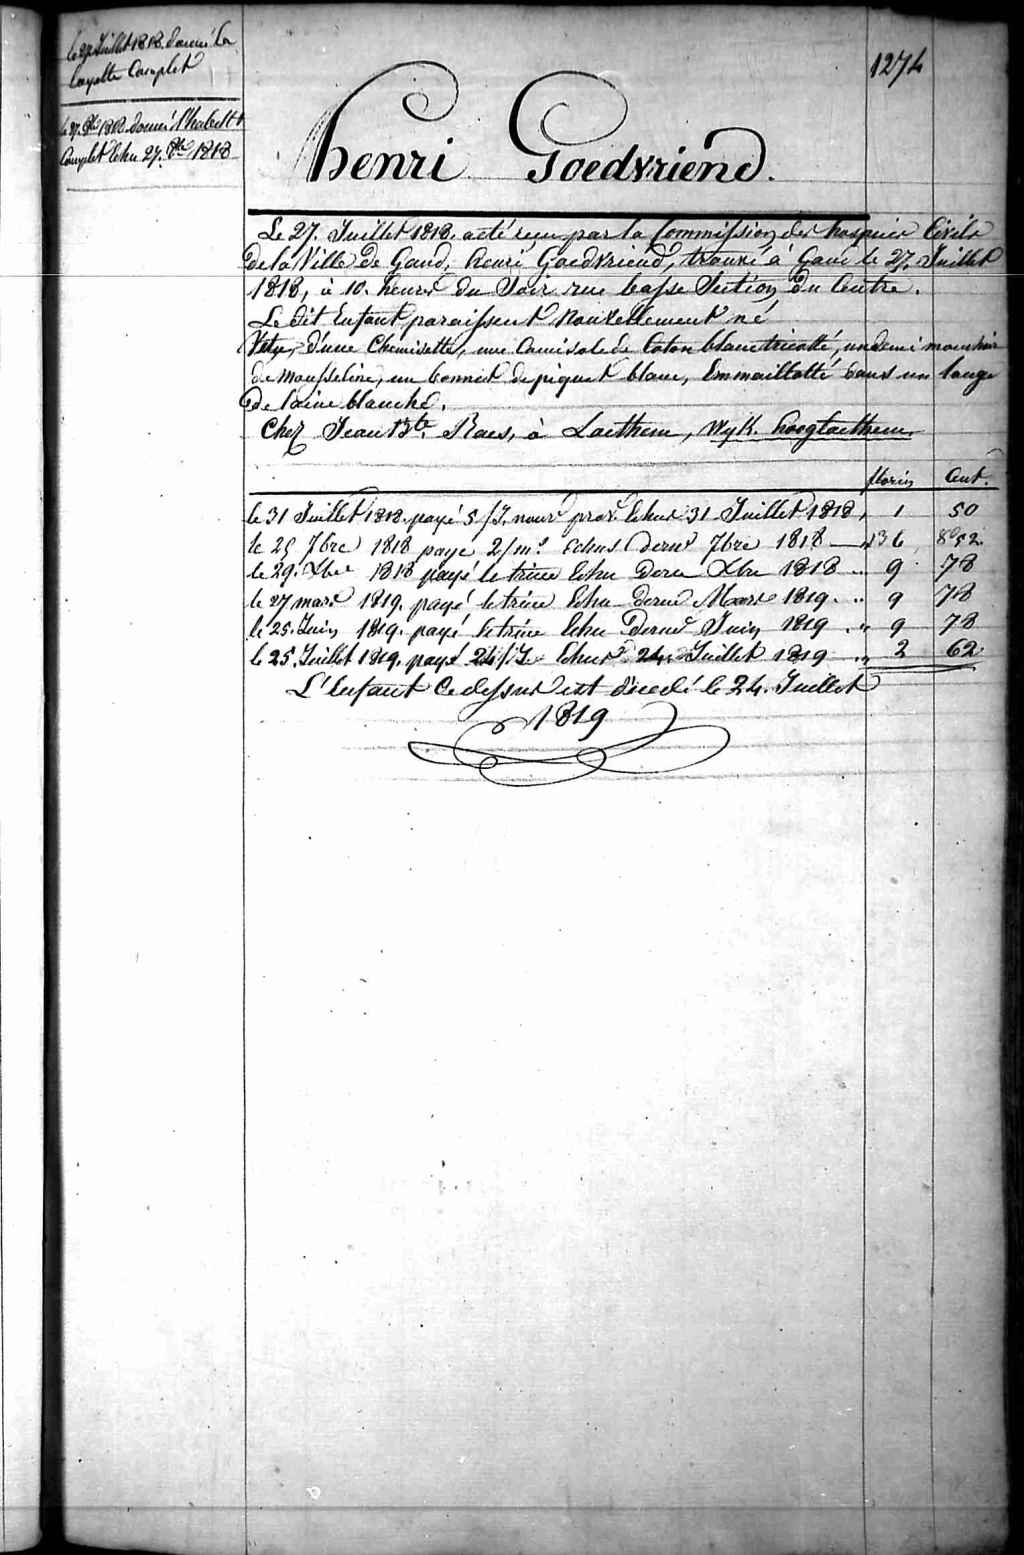 le 27 Juillet 1818 donné la
layette Complet
le 27. 8bre 1818 donné l'habillt
Complet Echu 27. 8bre 1818
1274
Henri Goedvriend.
Le 27. Juillet 1818. a été reçu par la Commission des hospices Civils
de la Ville de Gand, henri Goedvriend, trouvé à Gand le 27. Juillet
1818, à 10. heures du Soir rue basse Section du Centre.
Le dit Enfant paraissent Nouvellement né
Vetu, d'une Chemisette, une Camisole de Coton blanc tricotté, un demi mouchoir
de mousseline, un bonnet de piquet blanc, Emmaillotté dans un lange
de laine blanche.
Chez Jean Bte. Raes, à Laethem, Wyk. hooglaethem.
florins Cent.
le 31 Juillet 1818. payé 5/J. nour prov. Echus 31 Juillet 1818, 1 50
le 25 7bre 1818 payé 2/ms Echus derns 7bre 1818 6 52
le 29. Xbre 1818 payé le trime Echu Dern Xbre 1818 " 9 78
le 27 mars 1819. payé le trime Echu dernd Mars 1819. " 9 78
le 25. Juin 1819. payé le trime Echu Dernd Juin 1819 . " 9 78
le 25. Juillet 1819. payé 24/J. Echus 24. Juillet 1819 " 2 62
L'Enfant Cedessus est décedé le 24. Juillet
1819